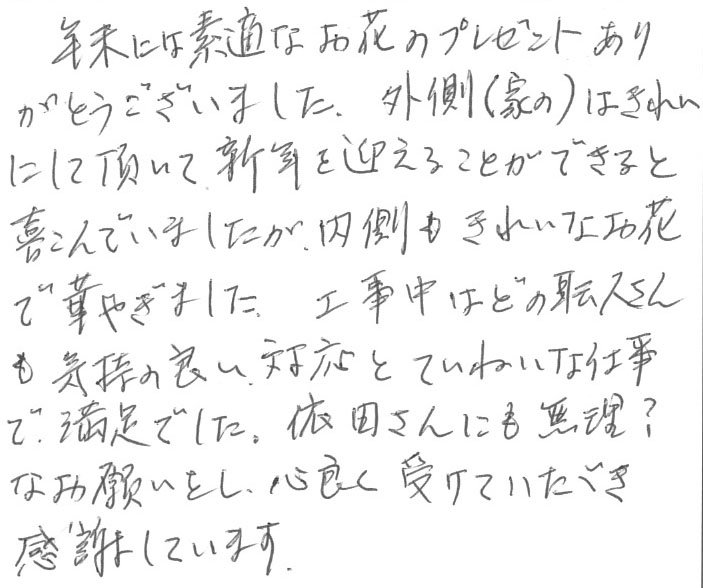 年末には素適なお花のプレゼントあり
がとうございました。外側(家の)はきれい
にして頂いて、新年を迎えることができると
喜こんでいましたが、内側もきれいなお花
で華やぎました。工事中はどの職人さん
も気持の良い対応とていねいな仕事
で満足でした。依田さんにも無理?
なお願いをし、心良く受けていただき
感謝しています。